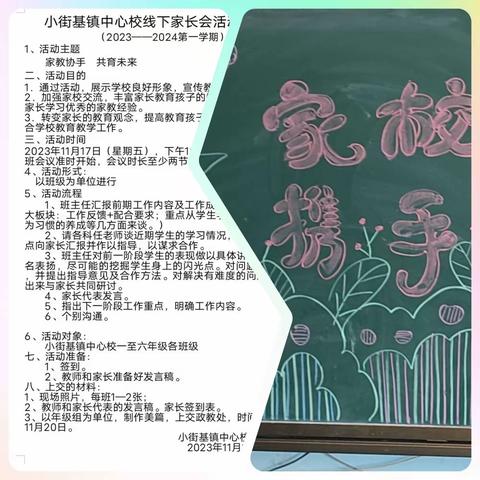 小街基镇中心校线下家长会活动
（2023——2024第一学期）
1、活动主题
家教协手 共育未来
二、活动目的
1．通过活动，展示学校良好形象，宣传教
2．加强家校交流，丰富家长教育孩子的
家长学习优秀的家教经验。
3．转变家长的教育观念，提高教育孩子
合学校教育教学工作。
三、活动时间
2023年11月17日（星期五），下午1
班会议准时开始，会议时长至少两节
4、活动形式：
以班级为单位进行
5、活动流程
1、班主任汇报前期工作内容及工作成
大板块：工作反馈+配合要求；重点从学生
为习惯的养成等几方面来谈。）
2、请各科任老师谈近期学生的学习情况，
点向家长汇报并作以指导，以谋求合作。
3、班主任对前一阶段学生的表现做以具体讲
名表扬，尽可能的挖掘学生身上的闪光点。对问
并提出指导意见及合作方法。对解决有难度的问
出来与家长共同研讨。
4、家长代表发言。
5、指出下一阶段工作重点，明确工作内容。
6、个别沟通。
6、活动对象：
小街基镇中心校一至六年级各班级
七、活动准备：
1、签到。
2、教师和家长准备好发言稿。
八、上交的材料：
1、现场照片，每班1—2张；
2、教师和家长代表的发言稿。家长签到表。
3、以年级组为单位，制作美篇，上交政教处，时间
11月20日。
小街基镇中心校
2023年11月
家校
携手